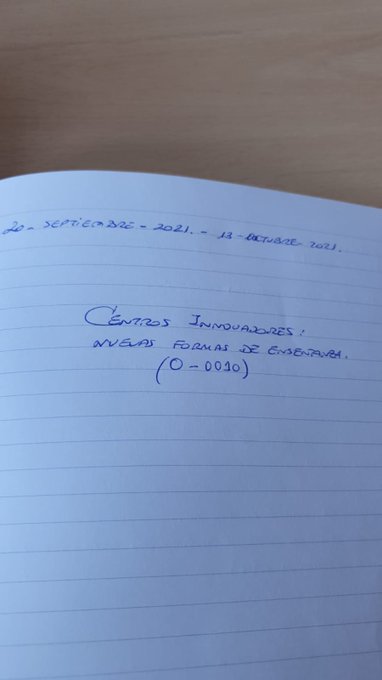 20- SEPTIEMBRE - 2021. - 13 - OCTUBRE 2021.
CENTROS INNOVADORES:
NUEVAS FORMAS DE ENSEÑANZA.
(O-0010)